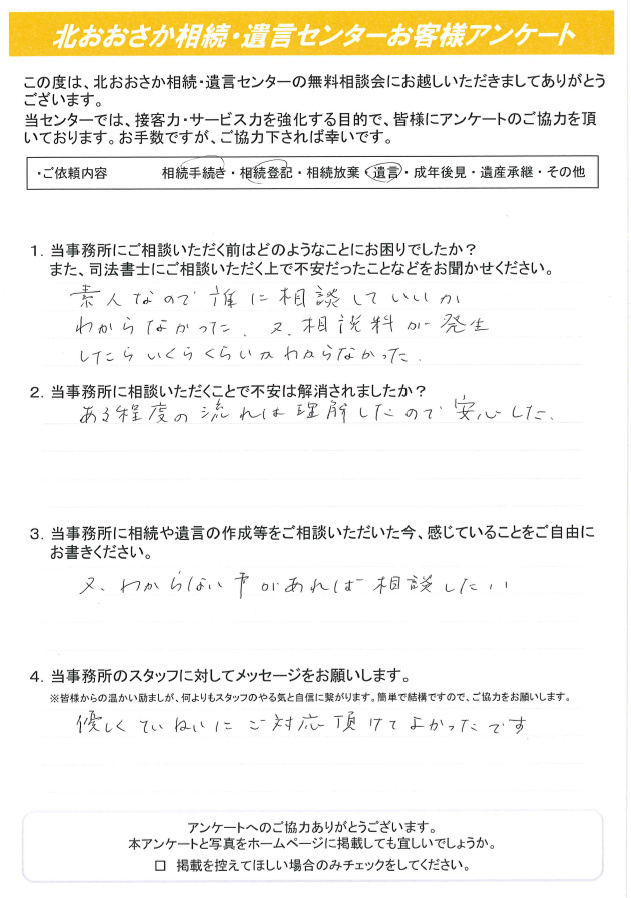 北おおさか相続・遺言センターお客様アンケート
この度は、北おおさか相続・遺言センターの無料相談会にお越しいただきましてありがとう
ございます。
当センターでは、接客力・サービス力を強化する目的で、皆様にアンケートのご協力を頂
いております。お手数ですが、ご協力下されば幸いです。
・ご依頼内容 相続手続き・相続登記・相続放棄・遺言・成年後見・遺産承継・その他
1. 当事務所にご相談いただく前はどのようなことにお困りでしたか?
また、司法書士にご相談いただく上で不安だったことなどをお聞かせください。
素人なので誰に相談していいか
わからなかった. 又、相談料が発生
したらいくらくらいかわからなかった.
2. 当事務所に相談いただくことで不安は解消されましたか?
ある程度の流れは理解したので安心した.
3. 当事務所に相続や遺言の作成等をご相談いただいた今、感じていることをご自由に
お書きください。
又、わからない事があれば相談したい
4. 当事務所のスタッフに対してメッセージをお願いします。
※皆様からの温かい励ましが、何よりもスタッフのやる気と自信に繋がります。簡単で結構ですので、ご協力をお願いします。
優しくていねいにご対応頂けてよかったです
アンケートへのご協力ありがとうございます。
本アンケートと写真をホームページに掲載しても宜しいでしょうか。
□ 掲載を控えてほしい場合のみチェックをしてください。